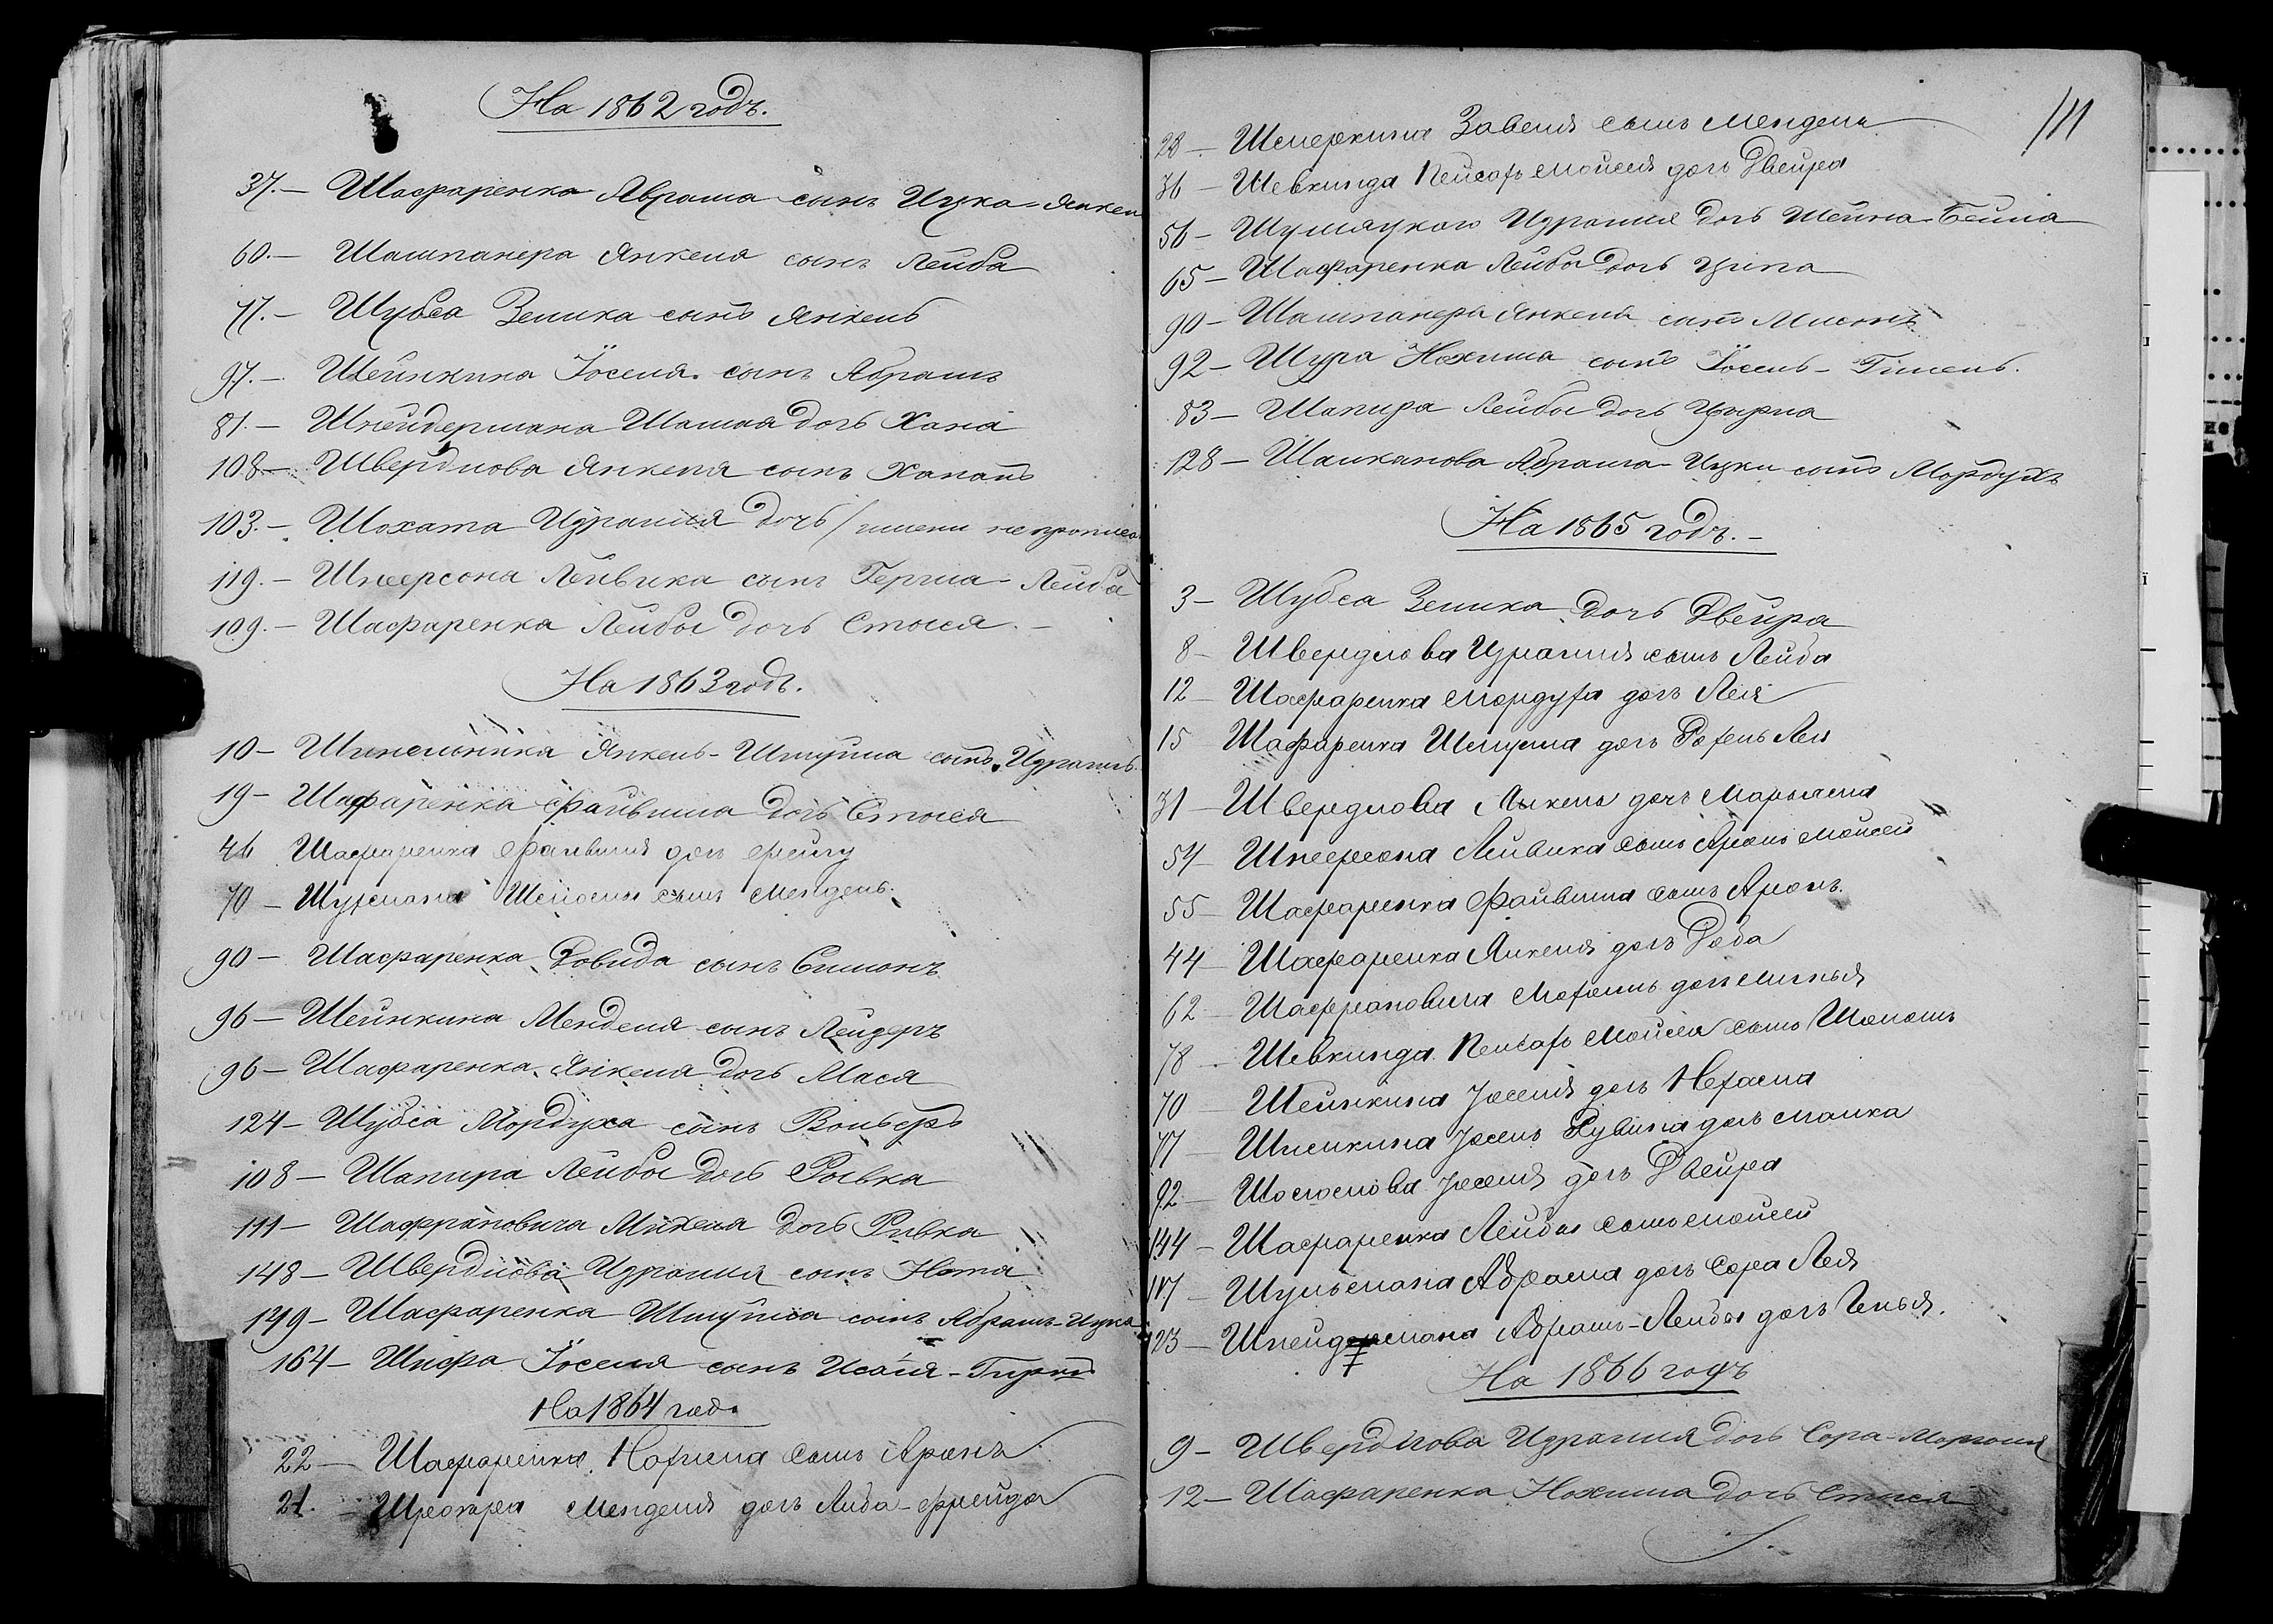 На 1862 годъ.
37. — Шафаренка Абрама сынъ Ицка-Янкел
60. — Шампанера Янкеля сынъ Лейба
77. — Шубса Зелика сынъ Янкель
97. — Шейнкина Іоселя сынъ Абрамъ
81. — Шнейдермана дочь Хана
108 — Швердлова Янкеля сынъ Хапанъ
103. — Шохата Израиля дочь / имени не прописа
119. — Шнеерсона Лейвика сынъ Герша-Лейба
109. — Шафаренка Лейбы дочь Стыся —
На 1863 годъ.
10 — Янкель-Шмуйла сынъ Израиль
19 — Шафаренка Файвиша дочь Стыся
46 Шафаренка Файвиша дочь
70 — сынъ Мендель
90 — Шафаренка Довида сынъ Симонъ
96 — Шейнкина Менделя сынъ Лейзеръ
96 — Шафаренка Янкеля дочь Мася
124 — Шубса Мордуха сынъ Вольфъ
108 — Шапира Лейбы дочь Рывка
111 — Шафрановича Михеля дочь Ривка
148 — Швердлова Израиля сынъ Нота
149 — Шафаренка Шмуйла сынъ Абрамъ-Ицка
164 — Шифра Іоселя сынъ Исаія-Гиршъ
На 1864 год.
22 — Шафаренка Нохима сынъ Аронъ
21. — Менделя дочь Либа-Фрейда
111
28 — сынъ Мендель
36 — Шевкинда Пейсахъ Мойсея дочь Двейра
56 — Шумяцкого Израиля дочь Шейна-Бейла
65 — Шафаренка Лейбы дочь Ципа
90 — Шампанера Янкеля сынъ
92 — Шура Нохима сынъ Іосель-Гилель.
83 — Шапира Лейбы дочь Цырла
128 — Абрама-Ицки сынъ Мордухъ
На 1865 годъ. —
3 — Шубса Зелика дочь Двейра
8 — Швердлова Израиля сынъ Лейба
12 — Шафаренка Мордуха дочь Лея
15 Шафаренка Шмуйла дочь Рохель Лея
31 — Швердлова Янкеля дочь
54 — Шнеерсона Лейвика сынъ Аронъ Мойсей
55 — Шафаренка Файвиша сынъ Аронъ.
44 — Шафаренка Янкеля дочь Доба
62 — Шафрановича дочь
78 — Шевкинда Пейсахъ Мойсея сынъ
70 — Шейнкина Іоселя дочь Нехама
77 — Іосель Рувина дочь Малка
92 — Іоселя дочь Двейра
144 — Шафаренка Лейбы сынъ Мойсей
117 — Шульмана Абрама дочь Сора Лея
123 — Шнейдермана Абрамъ-Лейбы дочь Генья.
На 1866 годъ
9 — Швердлова Израиля дочь Сора-
12 — Шафаренка Нохима дочь Стыся